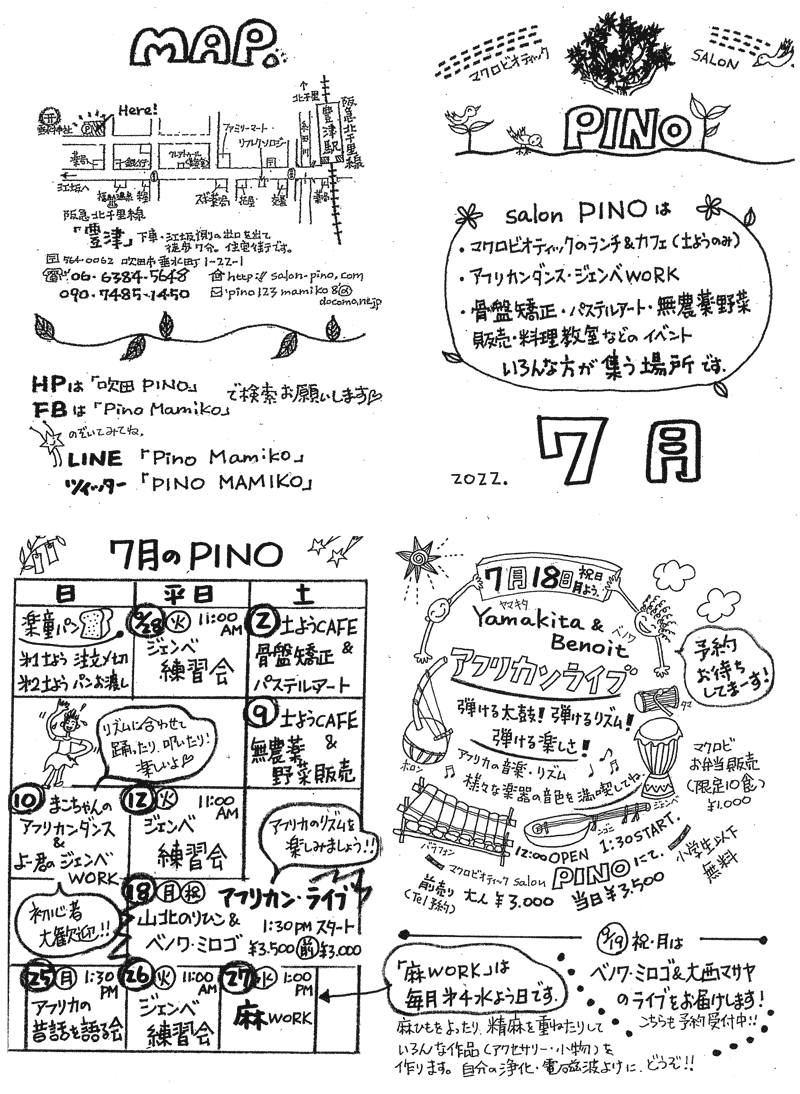 MAP.
Here!
北千里
阪急北千里線
豊津駅
ファミリーマート
リフレクソロジー
江坂へ
阪急北千里線
「豊津」下車・江坂側の出口を出て
徒歩7分。住宅街です。
〒564-0062 吹田市垂水町1-22-1
☎06・6384・5648
http://salon-pino.com
090・7485・1450
pino123mamiko8@
docomo.ne.jp
HPは「吹田PINO」
FBは「Pino Mamiko」
で検索お願いします
のぞいてみてね。
LINE「Pino Mamiko」
ツイッター「PINO MAMIKO」
マクロビオティック
SALON
PINO
salon PINOは
・マクロビオティックのランチ&カフェ(土ようのみ)
・アフリカンダンス・ジェンベWORK
・骨盤矯正・パステルアート・無農薬野菜
販売・料理教室などのイベント
いろんな方が集う場所です。
2022.
7月
7月のPINO
日 平日 土
楽童パン
㐧1土よう 注文〆切
㐧2土よう パンお渡し
6/28 火 11:00 AM
ジェンベ
練習会
2 土ようCAFE
&
骨盤矯正
パステルアート
リズムに合わせて
踊ったり、叩いたり!
楽しいよ
9 土ようCAFE
&
無農薬
野菜販売
10 まこちゃんの
アフリカンダンス
&
よー君のジェンベ
WORK
12 火 11:00 AM
ジェンベ
練習会
アフリカのリズムを
楽しみましょう!!
初心者
大歓迎!!
18 月 祝 アフリカン・ライブ
山北のりひこ&
ベノワ・ミロゴ
1:30PM スタート
¥3.500 前 ¥3.000
25 月 1:30 PM
アフリカの
昔話を語る会
26 火 11:00 AM
ジェンベ
練習会
27 水 1:00 PM
麻WORK
7月18日 祝日 月よう
ヤマキタ
Yamakita &
Benoit
ベノワ
アフリカンライブ
予約
お待ち
してまーす!
弾ける太鼓! 弾けるリズム!
弾ける楽しさ!
アフリカの音楽・リズム
様々な楽器の音色を満喫してね
ボロン
タマ
ジェンベ
バラフォン
ンゴニ
マクロビ
お弁当販売
(限定10食)
¥1.000
12:00 OPEN 1:30 START.
マクロビオティック salon PINOにて.
小学生以下
無料
前売り
(Tel予約)
大人¥3.000 当日¥3.500
9/19 祝・月は
ベノワ・ミロゴ&大西マサヤ
のライブをお届けします!
こちらも予約受付中!!
「麻WORK」は
毎月㐧4水よう日です。
麻ひもをよったり、精麻を重ねたりして
いろんな作品(アクセサリー・小物)を
作ります。自分の浄化・電磁波よけに、どうぞ!!